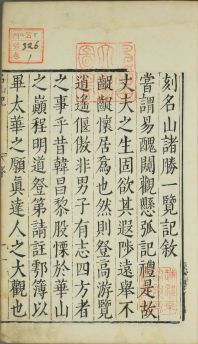 刻名山諸勝一覽記敘
嘗謂易醒闗觀懸張記禮是故
丈夫之生固欲其遐陟遠舉不
齪齪懷居爲也然則登高游覽
逍遙偃傲非男子有志四方者
之事乎昔韓昌黎股慄於華山
之巔程明道登第請註鄠簿以
畢太華之願眞達人之大觀也
326
1